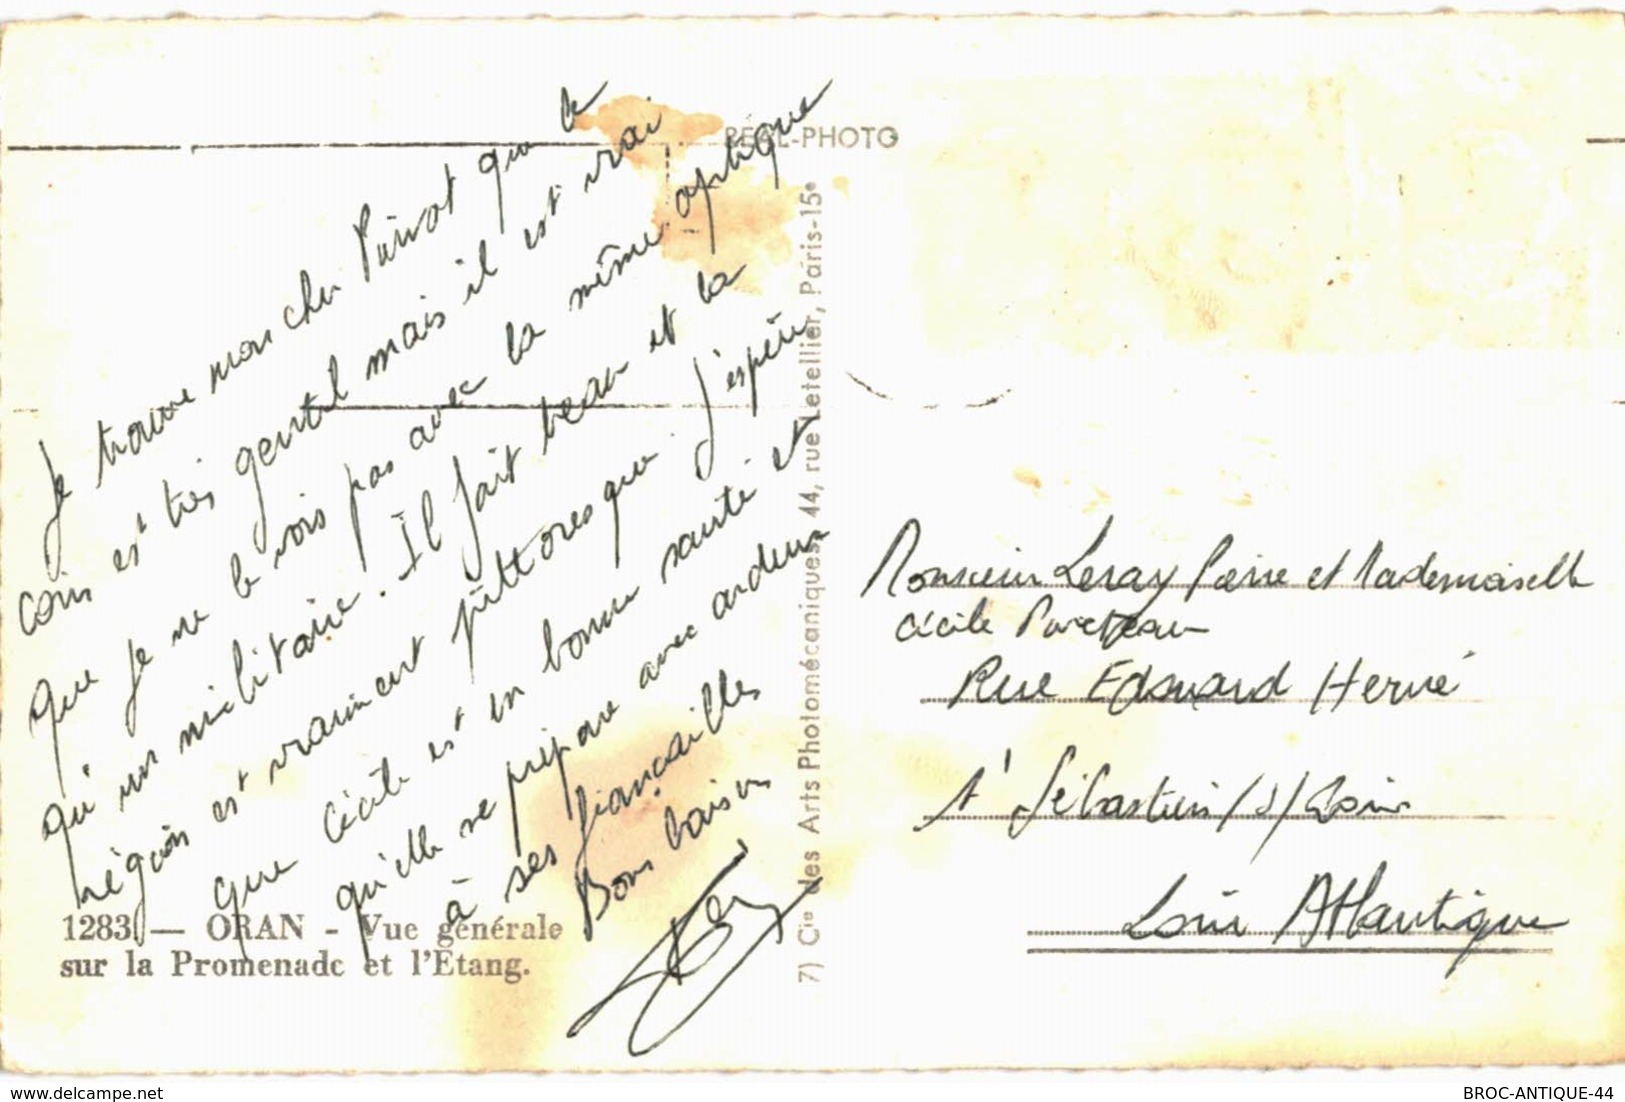 Je trouve mon cher Pierrot que le
coin est très gentil mais il est vrai
que je ne le vois pas avec la même optique
qu'un militaire. Il fait beau et la
région est vraiment pittoresque j'espère
que Cécile est en bonne santé et
qu'elle se prépare avec ardeur
à ses fiançailles
Bons baisers
1283. — ORAN - Vue générale
sur la Promenade et l'Etang.
REAL-PHOTO
7) Cie des Arts Photomécaniques, 44, rue Letellier, Paris-15e
Monsieur Leray Pierre et Mademoiselle
Cécile
Rue Edouard Hervé
St Sébastien /s/ Loire
Loire Atlantique
delcampe.net
BROC-ANTIQUE-44